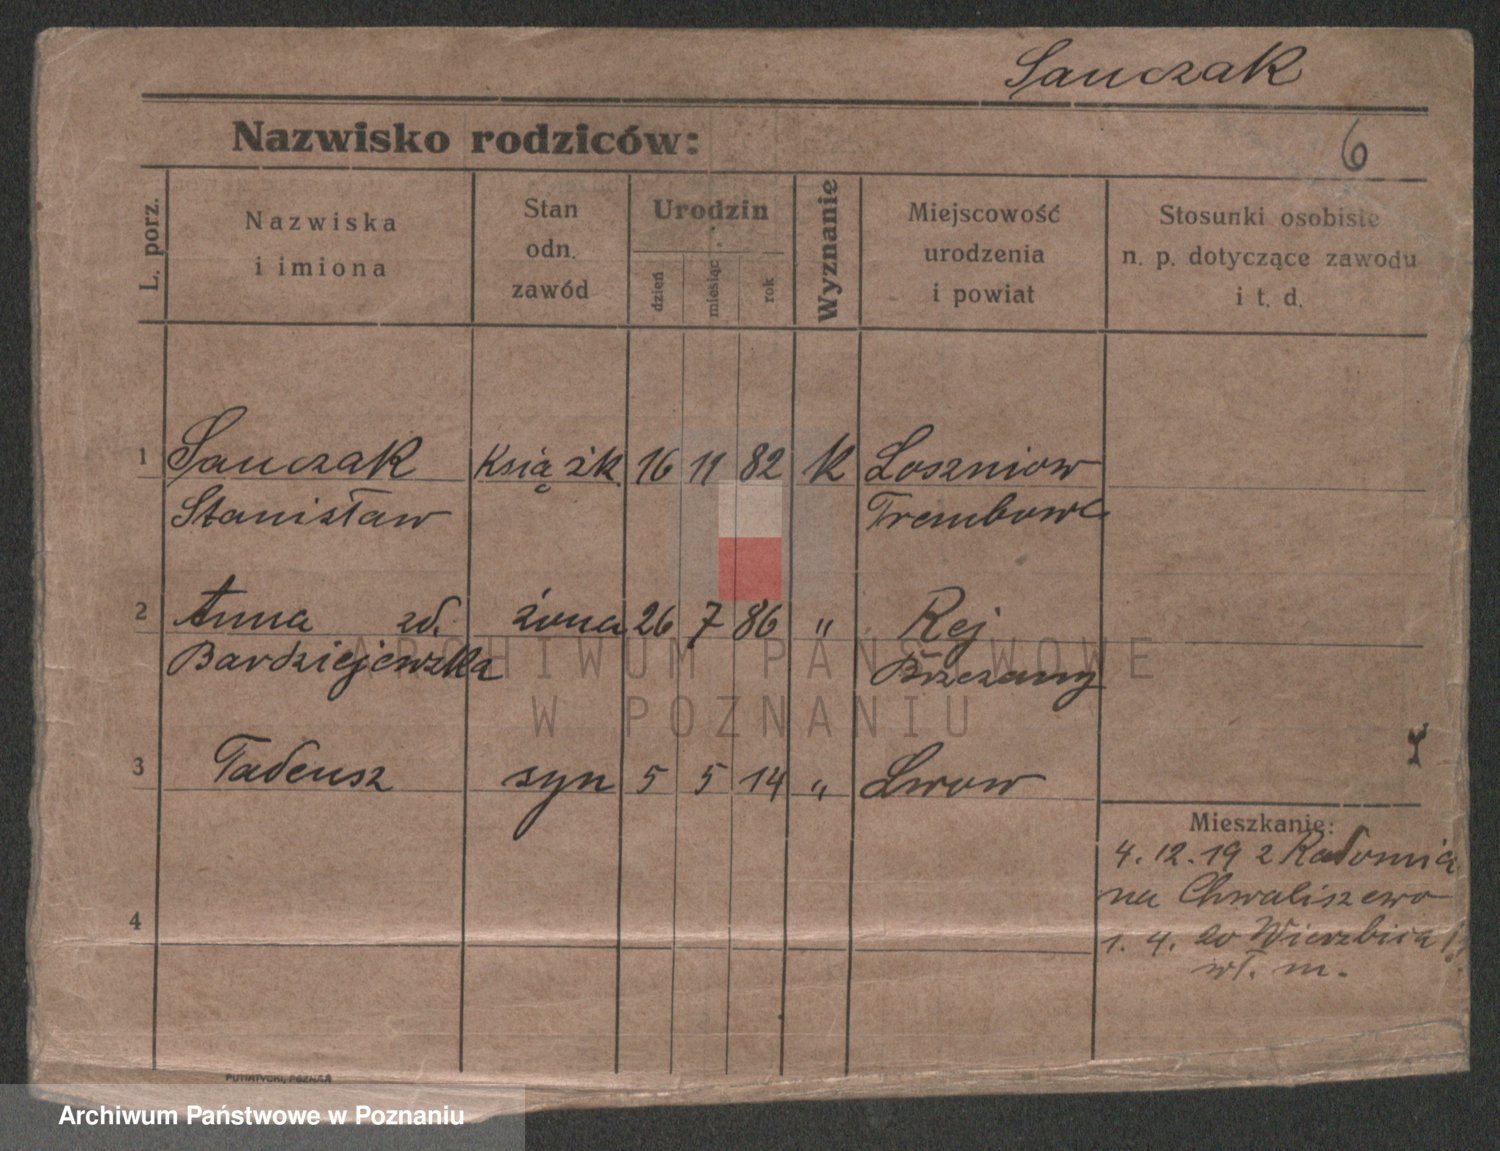 Sauczak
Nazwisko rodziców:
6
L. porz.
Nazwiska
i imiona
Stan
odn.
zawód
Urodzin
dzień
miesiąc
rok
Wyznanie
Miejscowość
urodzenia
i powiat
Stosunki osobiste
n. p. dotyczące zawodu
i t. d.
1 Sauczak Książk. 16 11 82 k Loszniow
Stanisław Trembowl
2 Anna zd. żona 26 7 86 „ Rej
Bardziejewska Brzezany
3 Tadeusz syn 5 5 14 „ Lwow
Mieszkanie:
4. 12. 19 z Radomia
na Chwaliszewo
4
1. 4. 20 Wierzbica
wł. m.
PUTIATYCKI, POZNAŃ
ARCHIWUM PAŃSTWOWE
W POZNANIU
Archiwum Państwowe w Poznaniu